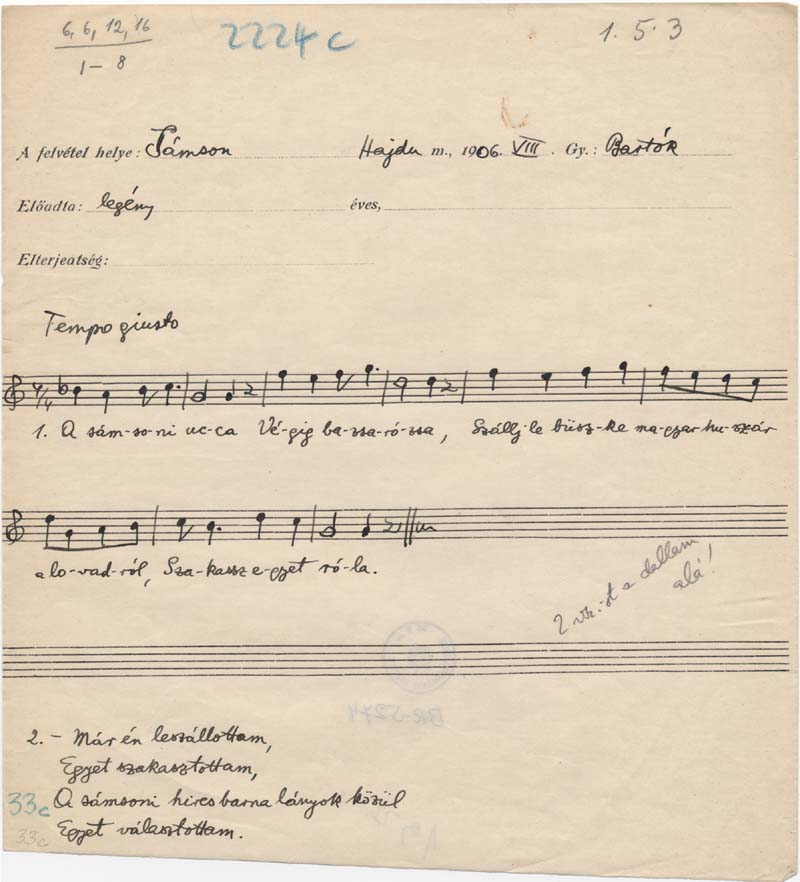 6, 6, 12, 16
1 – 8
2224 c
1. 5. 3
A felvétel helye: Sámson Hajdu m., 1906. VIII. Gy.: Bartók
Előadta: legény éves,
Elterjeatség:
Tempo giusto
1. A sám-so-ni uc-ca Vé-gig ba-zsa-ró-zsa, Szállj-le büsz-ke ma-gyar hu-szár
a lo-vad-ról, Sza-kassz e-gyet ró-la.
a dallam
alá!
BR-5271
2. – Már én leszállottam,
Egyet szakasztottam,
33c A sámsoni hires barna lányok közül
33c Egyet választottam.